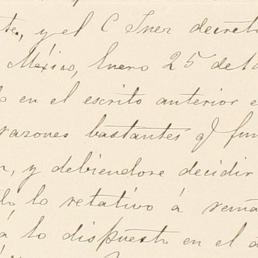 te, y el C Juez decretó
México, Enero 25 de
en el escrito anterior e
razones bastantes q fun
y debiendose decidir
lo relativo á rema
lo dispuesto en el a